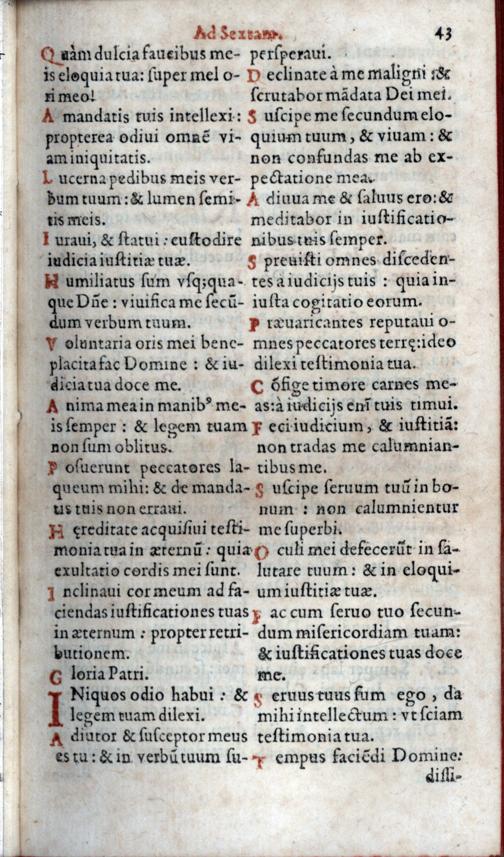 Ad Sextam.
43
Quàm dulcia faucibus me-
is eloquia tua: super mel o-
ri meo!
A mandatis tuis intellexi:
propterea odiui omnē vi-
am iniquitatis.
Lucerna pedibus meis ver-
bum tuum: & lumen semi-
tis meis.
Iuraui, & statui: custodire
iudicia iustitiæ tuæ.
Humiliatus sum vsq; qua-
que Dñe: viuifica me secū-
dum verbum tuum.
Voluntaria oris mei bene-
placita fac Domine: & iu-
dicia tua doce me.
Anima mea in manibꝰ me-
is semper: & legem tuam
non sum oblitus.
Posuerunt peccatores la-
queum mihi: & de manda-
tis tuis non erraui.
Hęreditate acquisiui testi-
monia tua in æternū: quia
exultatio cordis mei sunt.
Inclinaui cor meum ad fa-
ciendas iustificationes tuas
in æternum: propter retri-
butionem.
Gloria Patri.
INiquos odio habui: &
legem tuam dilexi.
Adiutor & susceptor meus
es tu: & in verbū tuum su-
persperaui.
Declinate à me maligni: &
scrutabor mādata Dei mei.
Suscipe me secundum elo-
quium tuum, & viuam: &
non confundas me ab ex-
pectatione mea.
Adiuua me & saluus ero: &
meditabor in iustificatio-
nibus tuis semper.
Spreuisti omnes disceden-
tes à iudicijs tuis: quia in-
iusta cogitatio eorum.
Præuaricantes reputaui o-
mnes peccatores terrę: ideo
dilexi testimonia tua.
Cōfige timore carnes me-
as: à iudicijs enī tuis timui.
Feci iudicium, & iustitiā:
non tradas me calumnian-
tibus me.
Suscipe seruum tuū in bo-
num: non calumnientur
me superbi.
Oculi mei defecerūt in sa-
lutare tuum: & in eloqui-
um iustitiæ tuæ.
Fac cum seruo tuo secun-
dum misericordiam tuam:
& iustificationes tuas doce
me.
Seruus tuus sum ego, da
mihi intellectum: vt sciam
testimonia tua.
Tempus faciēdi Domine:
dissi-